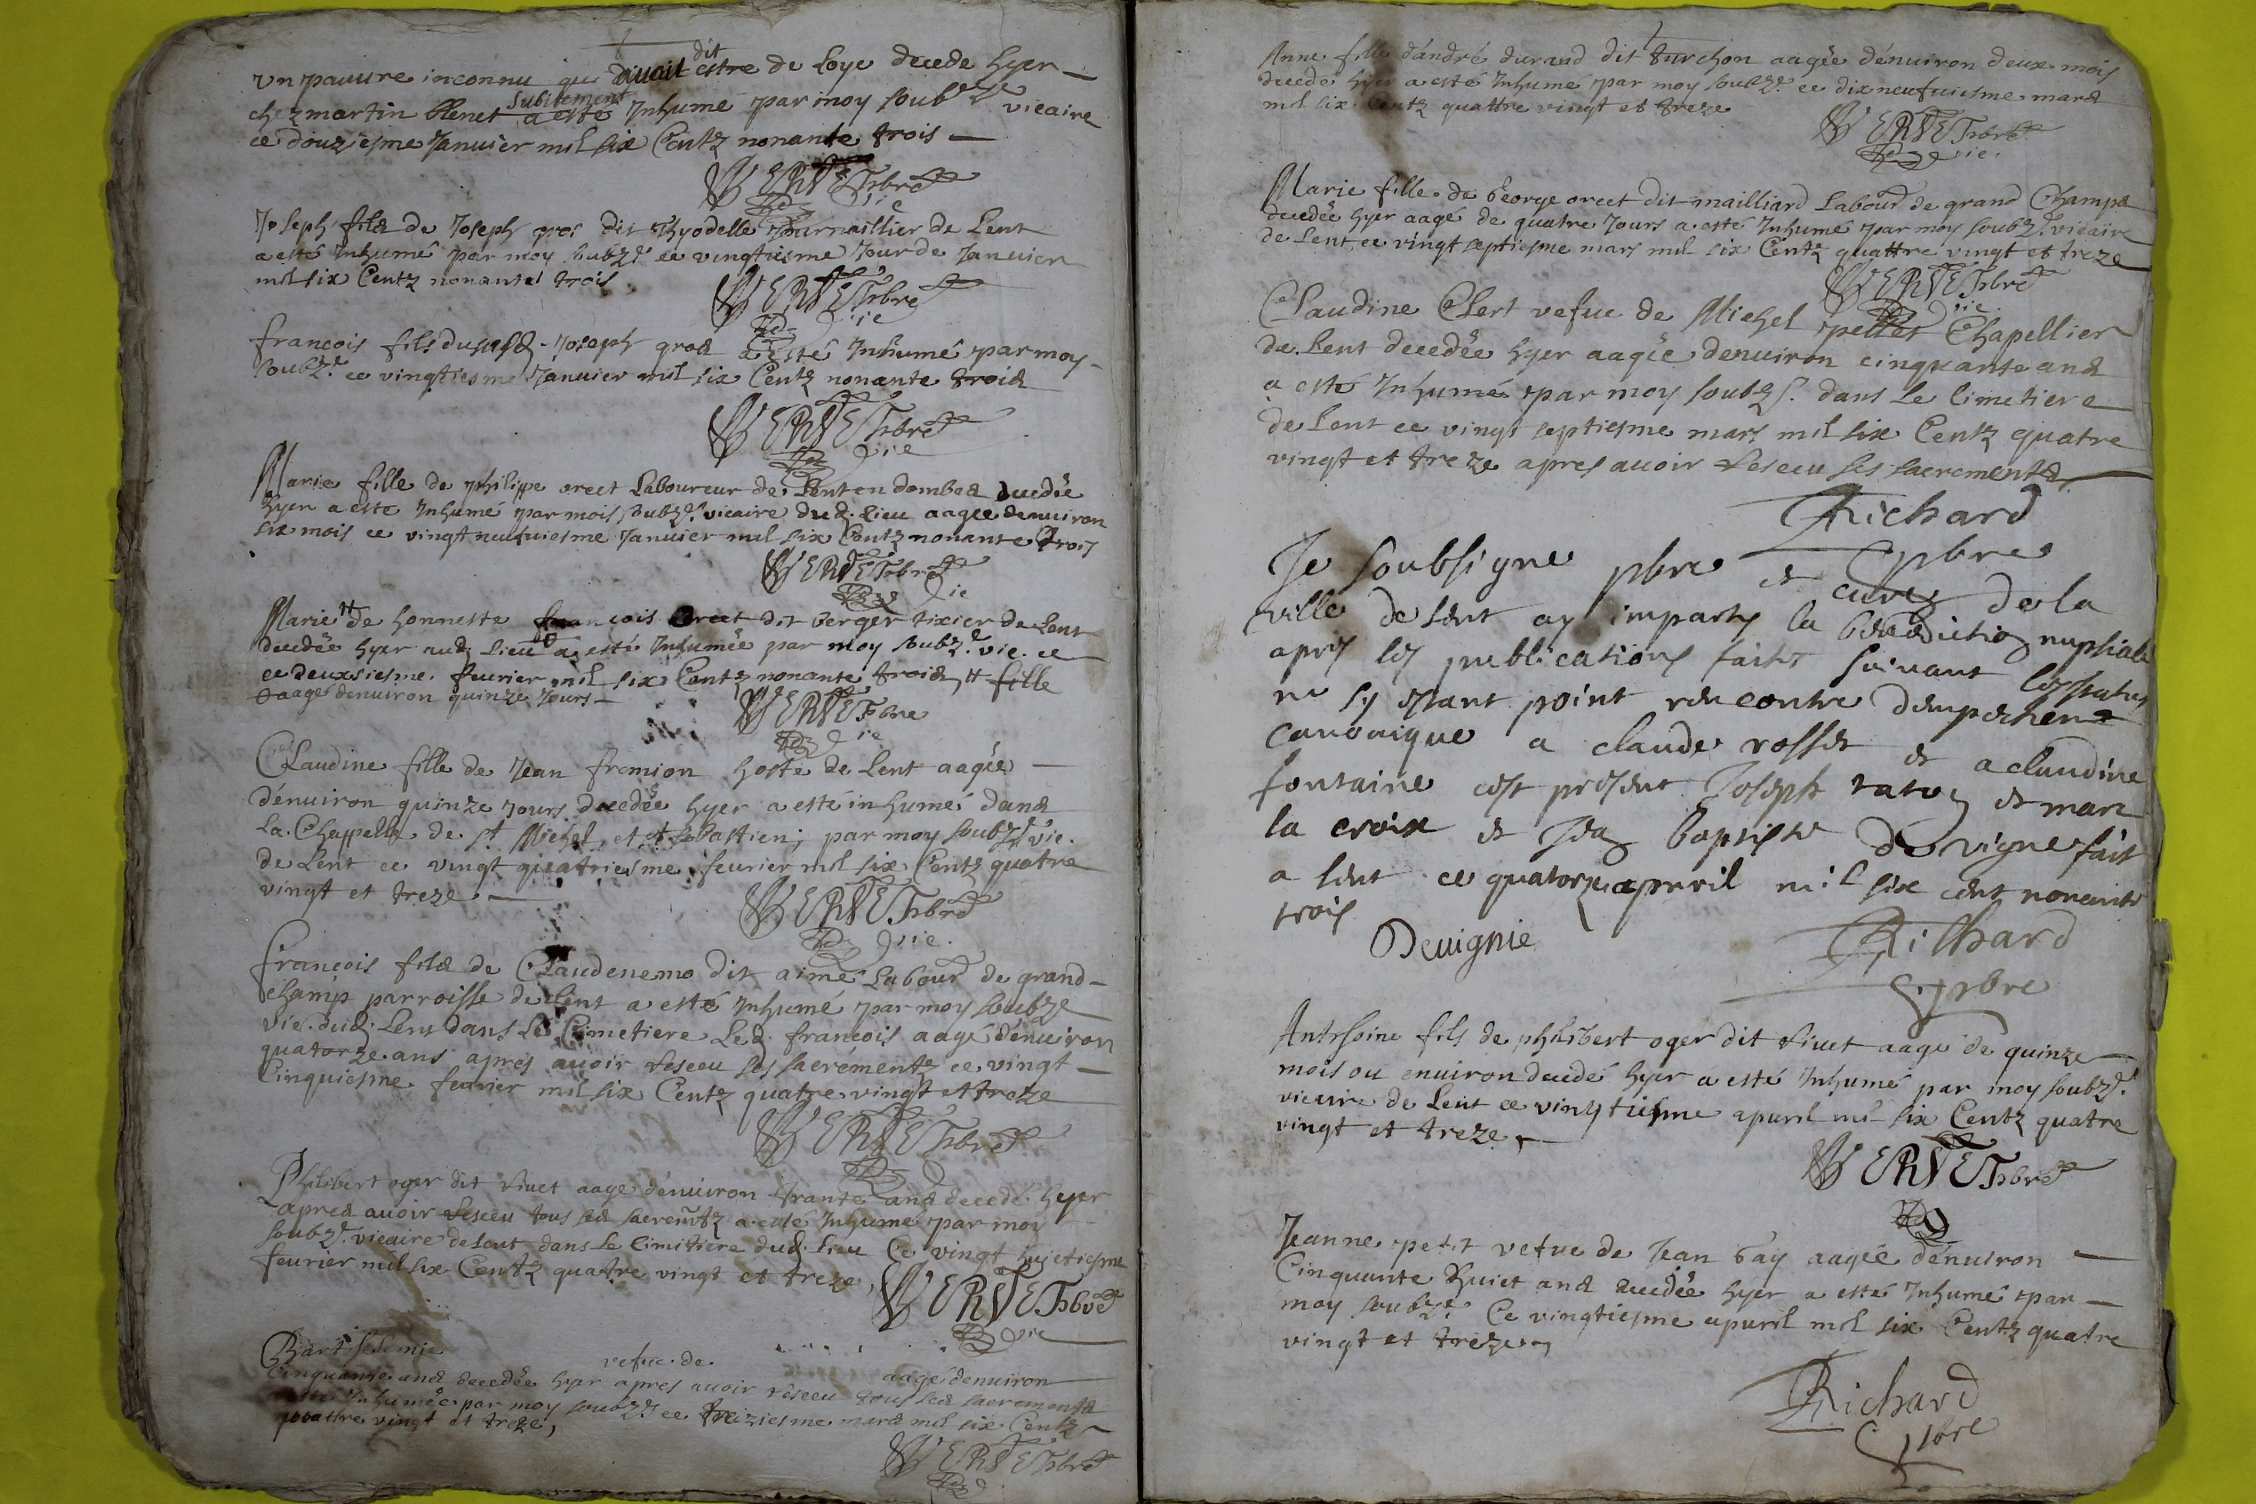 dit
un pauvre inconnu qui auoit estre de loye decede hyer
subitement
chez martin blenet a esté Inhumé par moy soubz.é vicaire
ce douziesme Januier mil six Centz nonante trois
VERNET pbre
vie
Joseph fils de Joseph gros dit Thyodelle Journaillier de Lent
a esté Inhumé par moy soubz.é ce vingtiesme Jour de Januier
mil six Centz nonante trois
VERNET pbre
vie
francois fils dususd. Joseph gros a esté Inhumé par moy
soubz.é ce vingtiesme Januier mil six Centz nonante trois
VERNET pbre
vie
Marie fille de philippe orcet Laboureur de Lent en dombes decedée
hyer a esté Inhumé par mois soubz.é vicaire dud. Lieu aagée denuiron
six mois ce vingt neufuiesme Januier mil six Centz nonante trois
VERNET pbre
vie
Marie # de honneste francois orcet dit berger tixier de Lent
decedée hyer aud. Lieu a esté Inhumée par moy soubz.é vic. ce
ce deuxiesme feurier mil six Centz nonante trois, # fille
aagé denuiron quinze Jours
VERNET pbre
vie
Claudine fille de Jean fremion hoste de Lent aagée
dénuiron quinze Jours decedée hyer a esté inhumé dans
La Chappelle de St Michel et st sebastien; par moy soubz.é vic.
de Lent ce vingt quatriesme feurier mil six Centz quatre
vingt et treze
VERNET pbre
vie.
François fils de Claude nemo dit aimé Labour. de grand
champ parroisse de Lent a esté Inhumé par moy soubz.é
vic. dud. Lent dans Le Cimetiere Led. francois aagé dénuiron
quatorze ans apres auoir receu ses sacréments ce vingt
Cinquiesme feurier mil six Centz quatre vingt et treze
VERNET pbre
Philibert oger dit viuet aagé dénuiron trante ans decedé hyer
apres auoir receu tous ses sacremtz a esté Inhumé par moy
soubz.é vicaire de Lent dans Le Cimitiere dud. Lieu Ce vingt huictiesme
feurier mil six Centz quatre vingt et treze,
VERNET pbre
vic
Barthelemie vefue de aagé denuiron
Cinquante ans decedée hyer apres auoir receu tous ses sacrements
a esté Inhumée par moy soubz.é ce treiziesme mars mil six Centz
quattre vingt et treze,
VERNET pbre
Anne fille d'andré durand dit turchon aagée dénuiron deux mois
decedé hyer a esté Inhumé par moy soubz.é ce dixneufuiesme mars
mil six Centz quattre vingt et treze
VERNET pbre
vie.
Marie fille de George orcet dit mailliard Labour. de grand Champs
decedée hyer aagé de quatre Jours a esté Inhumé par moy soubz.é vicaire
de Lent, ce vingt septiesme mars mil six Centz quattre vingt et treze
VERNET pbre
vie
Claudine Clert vefue de Michel pellet Chapellier
de Lent decedée hyer aagée denuiron cinquante ans
a esté Inhumé par moy soubz.é dans Le Cimetiere
de Lent ce vingt septiesme mars mil six Centz quatre
vingt et treze apres auoir receu ses sacrements
Richard
pbre
Je soubsigne pbre et curé de la
ville de Lent ay imparty la benediction nuptiale
apres les publications faites suiuant les statuts
ne sy estant point rencontre dempechement
canonique a claude rosset et a claudine
fontaine cest present Joseph tatoz et marc
la croix et Jean baptiste de vigne fait
a lent ce quatorze apvril mil six cent nonante
trois
Deuignie
Richard
pbre
Anthoine fils de philibert oger dit viuet aagé de quinze
mois ou enuiron decedé hyer a esté Inhumé par moy soubz.é
vicaire de Lent ce vingtiesme apuril mil six Centz quatre
vingt et treze,
VERNET pbre
Jeanne petit vefue de Jean bay aagée dénuiron
Cinquante huict ans decedée hyer a esté Inhumé par
moy soubz.é Ce vingtiesme apuril mil six Centz quatre
vingt et treze
Richard
pbre